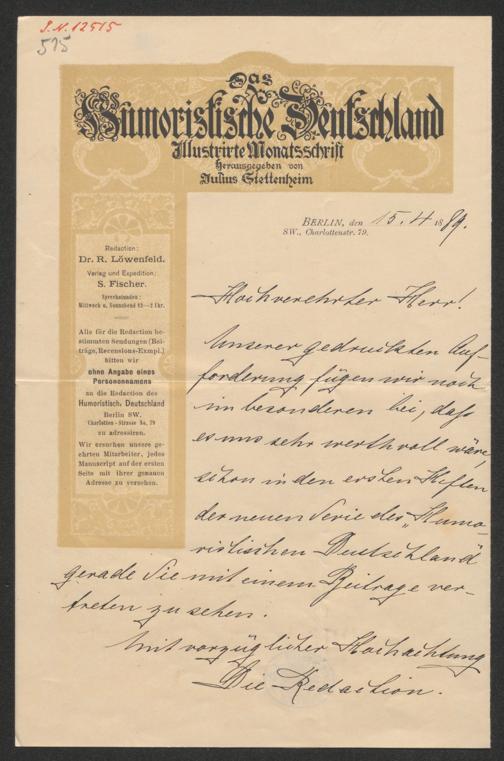 J.N. 12515
515
Das
Humoristische Deutschland
Illustrirte Monatsschrift
Herausgegeben von
Julius Stettenheim
BERLIN, den 15. 4 1889.
SW., Charlottenstr. 79.
Redaction:
Dr. R. Löwenfeld.
Verlag und Expedition:
S. Fischer.
Sprechstunden:
Mittwoch u. Sonnabend 12—2 Uhr.
Alle für die Redaction be-
stimmten Sendungen (Bei-
träge, Recensions-Exmpl.)
bitten wir
ohne Angabe eines
Personennamens
an die Redaction des
Humoristisch. Deutschland
Berlin SW.
Charlotten-Strasse 79
zu adressiren.
Wir ersuchen unsere ge-
ehrten Mitarbeiter, jedes
Manuscript auf der ersten
Seite mit ihrer genauen
Adresse zu versehen.
Hochverehrter Herr!
Unserer gedruckten Auf-
forderung fügen wir noch
im besonderen bei, daß
es uns sehr werthvoll wäre,
schon in den ersten Heften
der neuen Serie des „Humo-
ristischen Deutschland"
gerade Sie mit einem Beitrage ver-
treten zu sehen.
Mit vorzüglicher Hochachtung
Die Redaction.